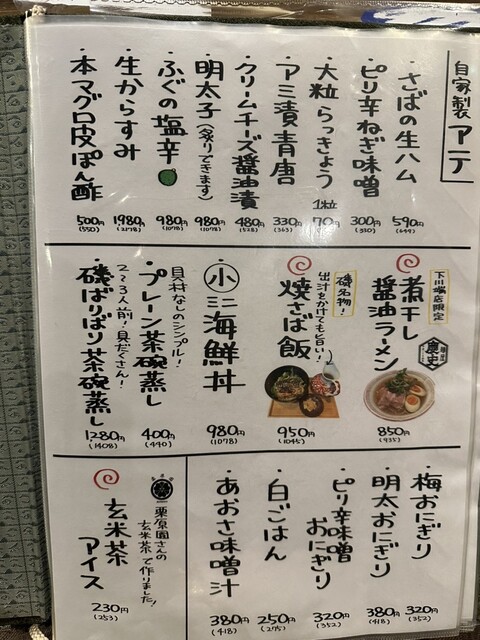 自家製アテ
・さばの生ハム 590円 (649)
・ピリ辛ねぎ味噌 300円 (330)
・大粒らっきょう 1粒 70円
・アミ漬青唐 330円 (363)
・クリームチーズ醤油漬 480円 (528)
・明太子(炙りできます) 980円 (1078)
・ふぐの塩辛 980円 (1078)
・生からすみ 1980円 (2178)
・本マグロ皮ぽん酢 500円 (550)
下川端店限定
煮干し
醤油ラーメン
850円 (935)
磯名物!
出汁をかけても旨い!
焼さば飯
950円 (1045)
・小 ミニ海鮮丼 980円 (1078)
具材なしのシンプル!
・プレーン茶碗蒸し 400円 (440)
2〜3人前!具だくさん!
・磯ばりばり茶碗蒸し 1280円 (1408)
・梅おにぎり 320円 (352)
・明太おにぎり 380円 (418)
・ピリ辛味噌
おにぎり 320円 (352)
・白ごはん 250円 (275)
・あおさ味噌汁 380円 (418)
栗原園さんの
玄米茶で作りました!
玄米茶
アイス
230円 (253)